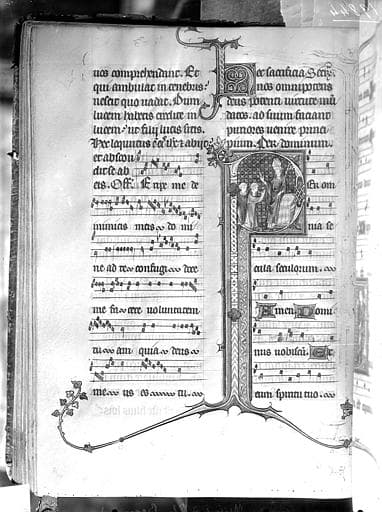 uos comprehendant. Et
qui ambulat in tenebris
nescit quo uadat. Dum
lucem habetis credite in
lucem: ut filij lucis sitis.
Hec locutus est ihc et abijt
et abscon
dit se ab
eis. Off. Eripe me de
inimicis meis do mi
ne ad te confugi doce
me facere voluntatem
tu am quia deus
me us es tu
Hec sacrificia
nos omnipotens
deus potenti uirtute mun
datos. ad suum faciant
puriores uenire princi
pium. Per dominum.
Per om
nia se
cula seculorum.
Amen Domi
nus uobiscum. Et
cum spiritu tuo